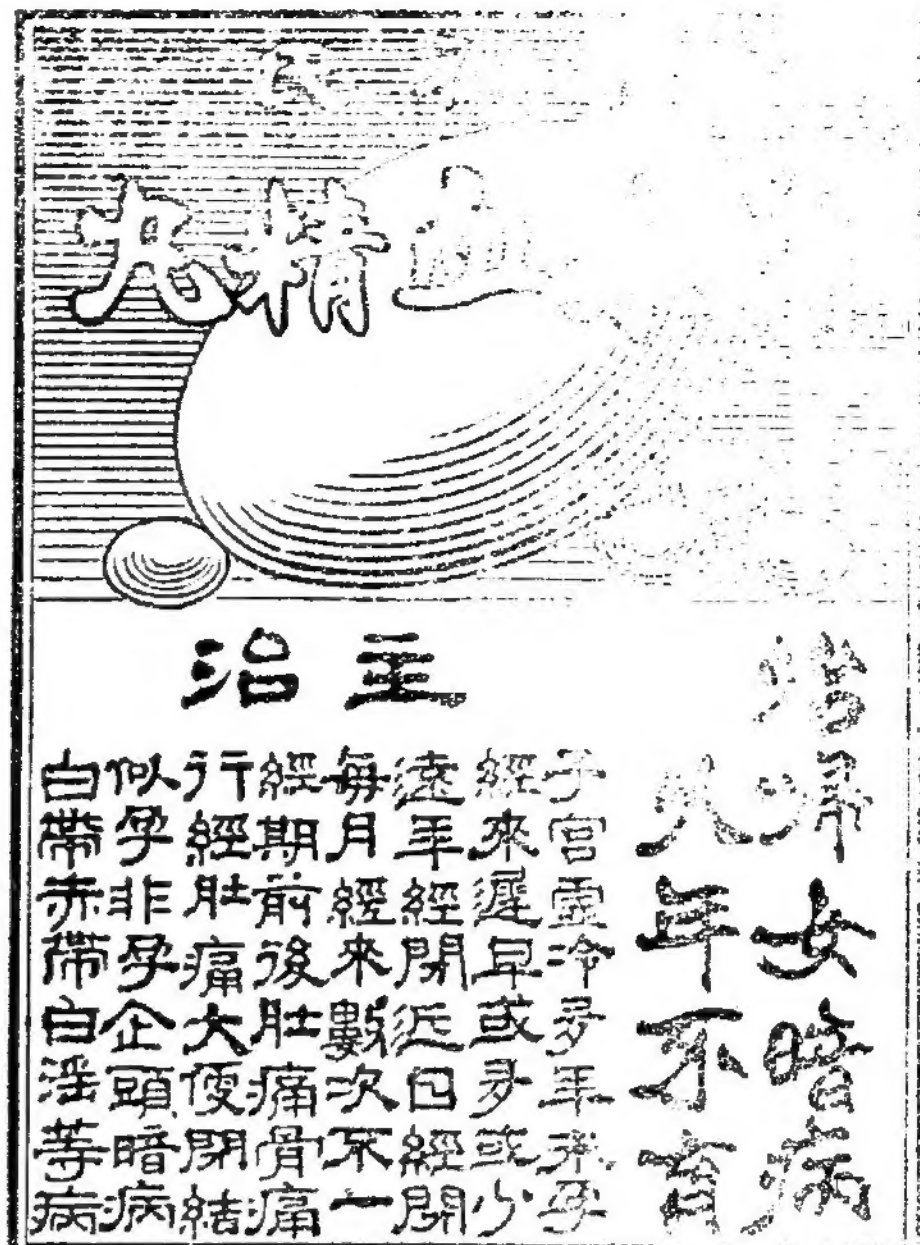 血精丸
治婦女暗病
久年不育
主治
子宮虛冷多年未孕
經來遲早或多或少
遠年經閉近日經閉
每月經來數次不一
經期前後肚痛骨痛
行經肚痛大便閉結
似孕非孕企頭暗病
白帶赤帶白淫等病